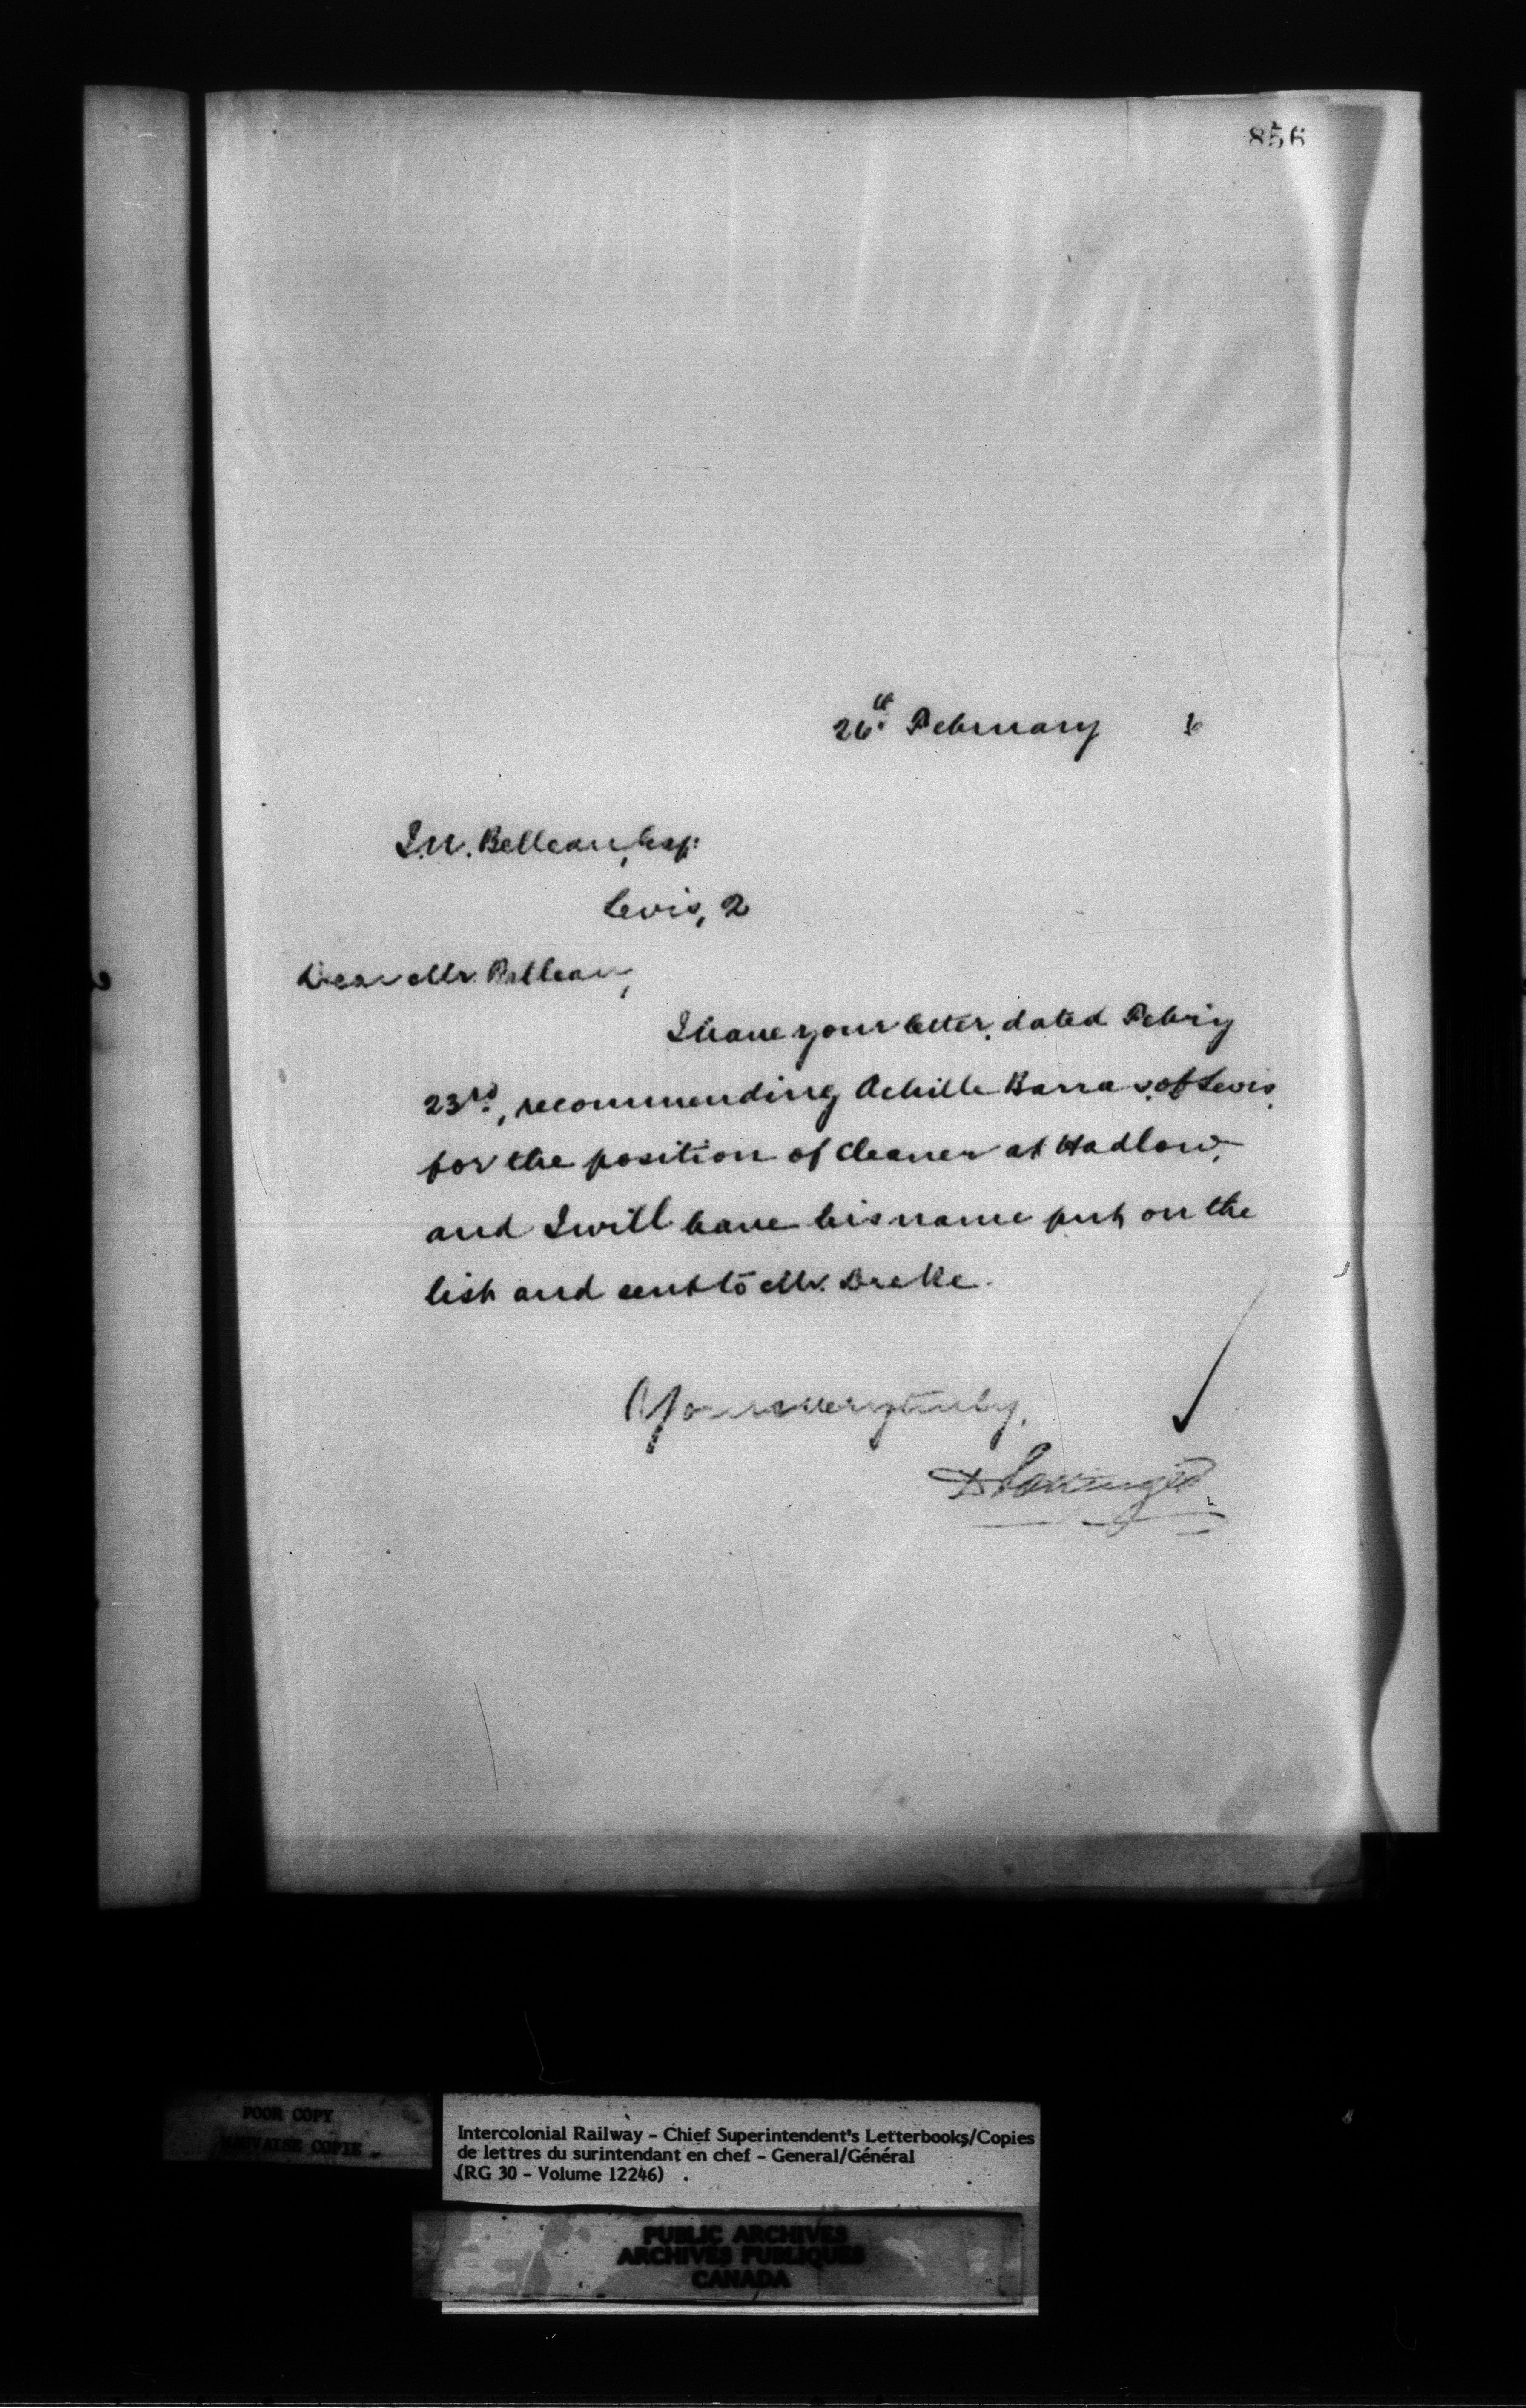 856
26th February
I.N. Belleau, Esq:
Levis, 2
Dear Mr. Belleau,
I have your letter, dated Febry
23rd, recommending Achille Barras, of Levis,
for the position of cleaner at Hadlow,
and I will have his name put on the
list and sent to Mr.
Yours very truly,
D Pottinger
POOR COPY
MAUVAISE COPIE
Intercolonial Railway - Chief Superintendent's Letterbooks/Copies
de lettres du surintendant en chef - General/Général
(RG 30 - Volume 12246)
PUBLIC ARCHIVES
ARCHIVES PUBLIQUES
CANADA